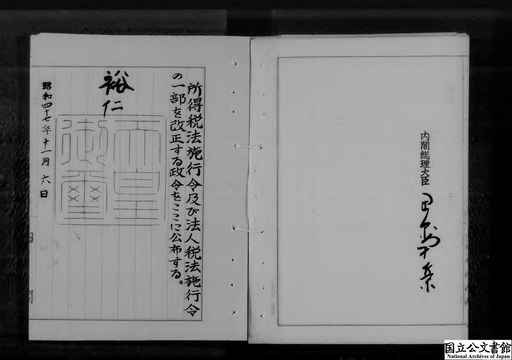 所得税法施行令及び法人税法施行令
の一部を改正する政令をここに公布する。
裕仁
天皇
御璽
昭和四十七年十一月六日
内閣総理大臣
田中角榮
国立公文書館
National Archives of Japan